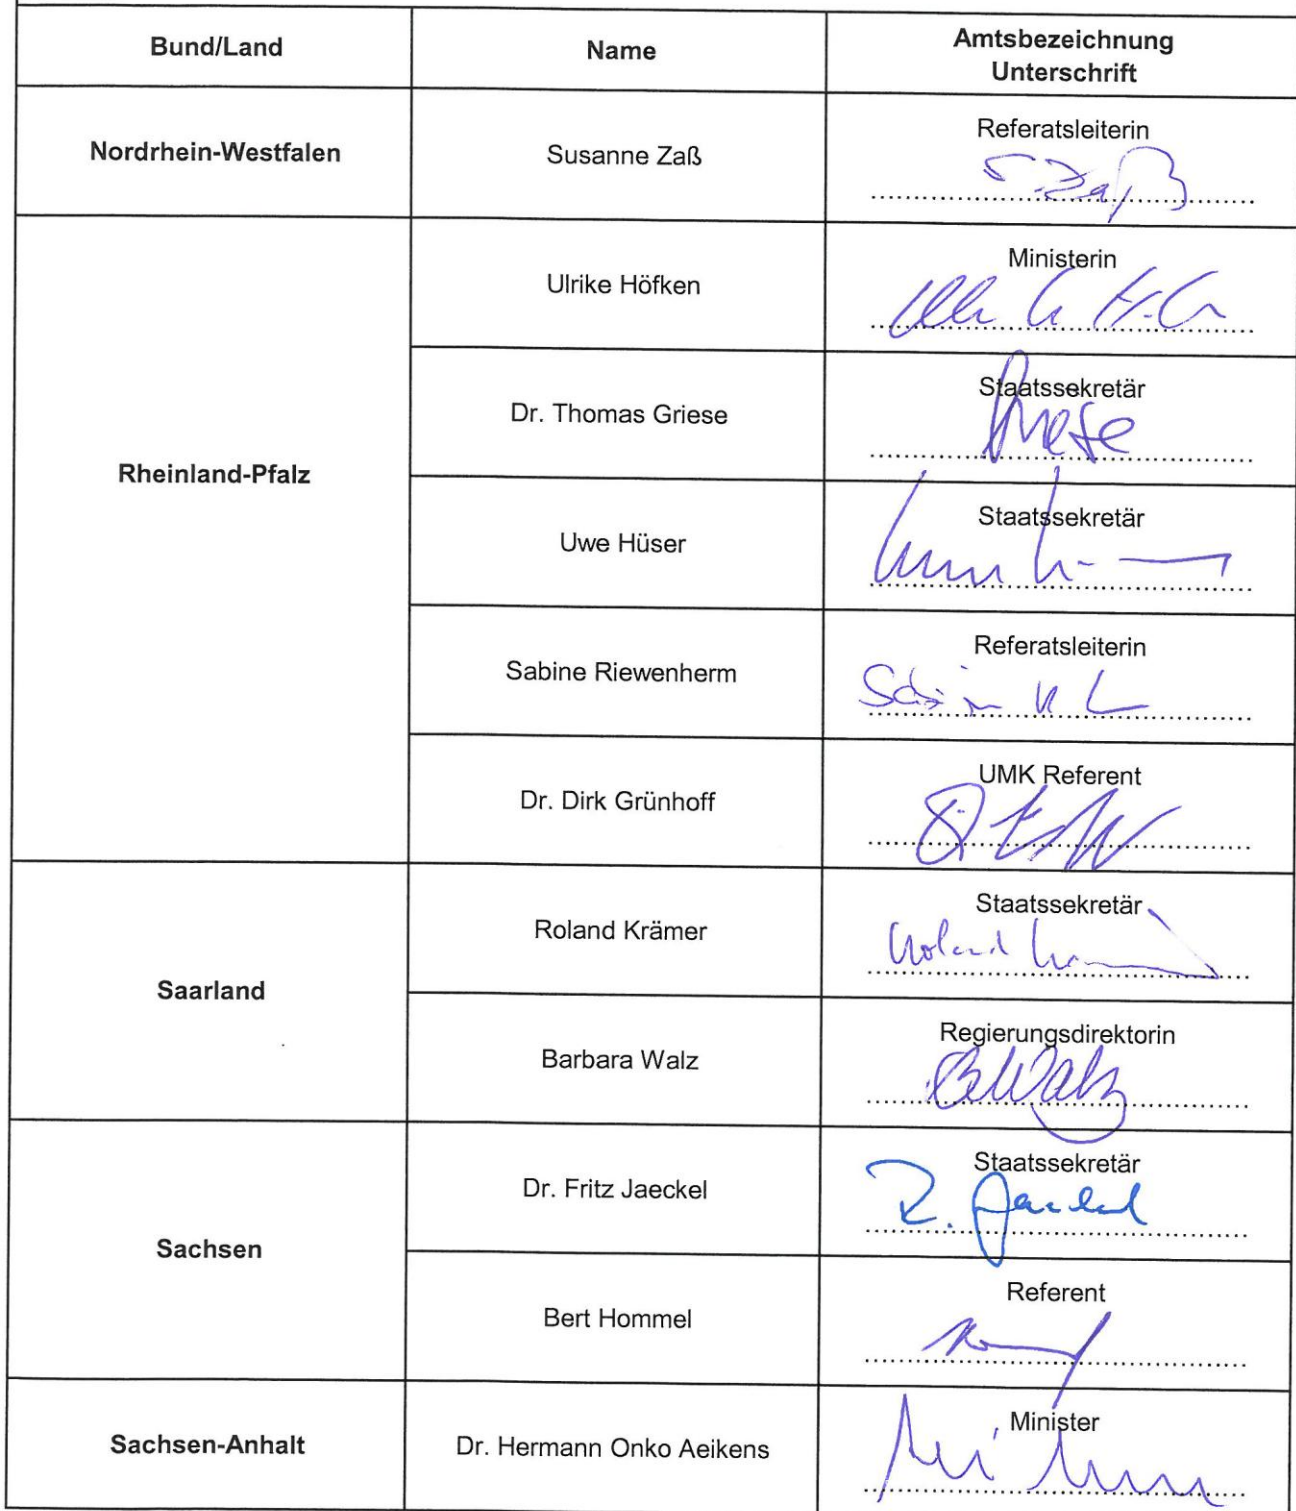 Bund/Land Name Amtsbezeichnung
Unterschrift
Nordrhein-Westfalen Susanne Zaß Referatsleiterin
S. Zaß
Rheinland-Pfalz
Ulrike Höfken Ministerin
Dr. Thomas Griese Staatssekretär
Griese
Uwe Hüser Staatssekretär
Sabine Riewenherm Referatsleiterin
Dr. Dirk Grünhoff UMK Referent
Saarland
Roland Krämer Staatssekretär
Roland
Barbara Walz Regierungsdirektorin
BWalz
Sachsen
Dr. Fritz Jaeckel Staatssekretär
Jaeckel
Bert Hommel Referent
Sachsen-Anhalt Dr. Hermann Onko Aeikens Minister